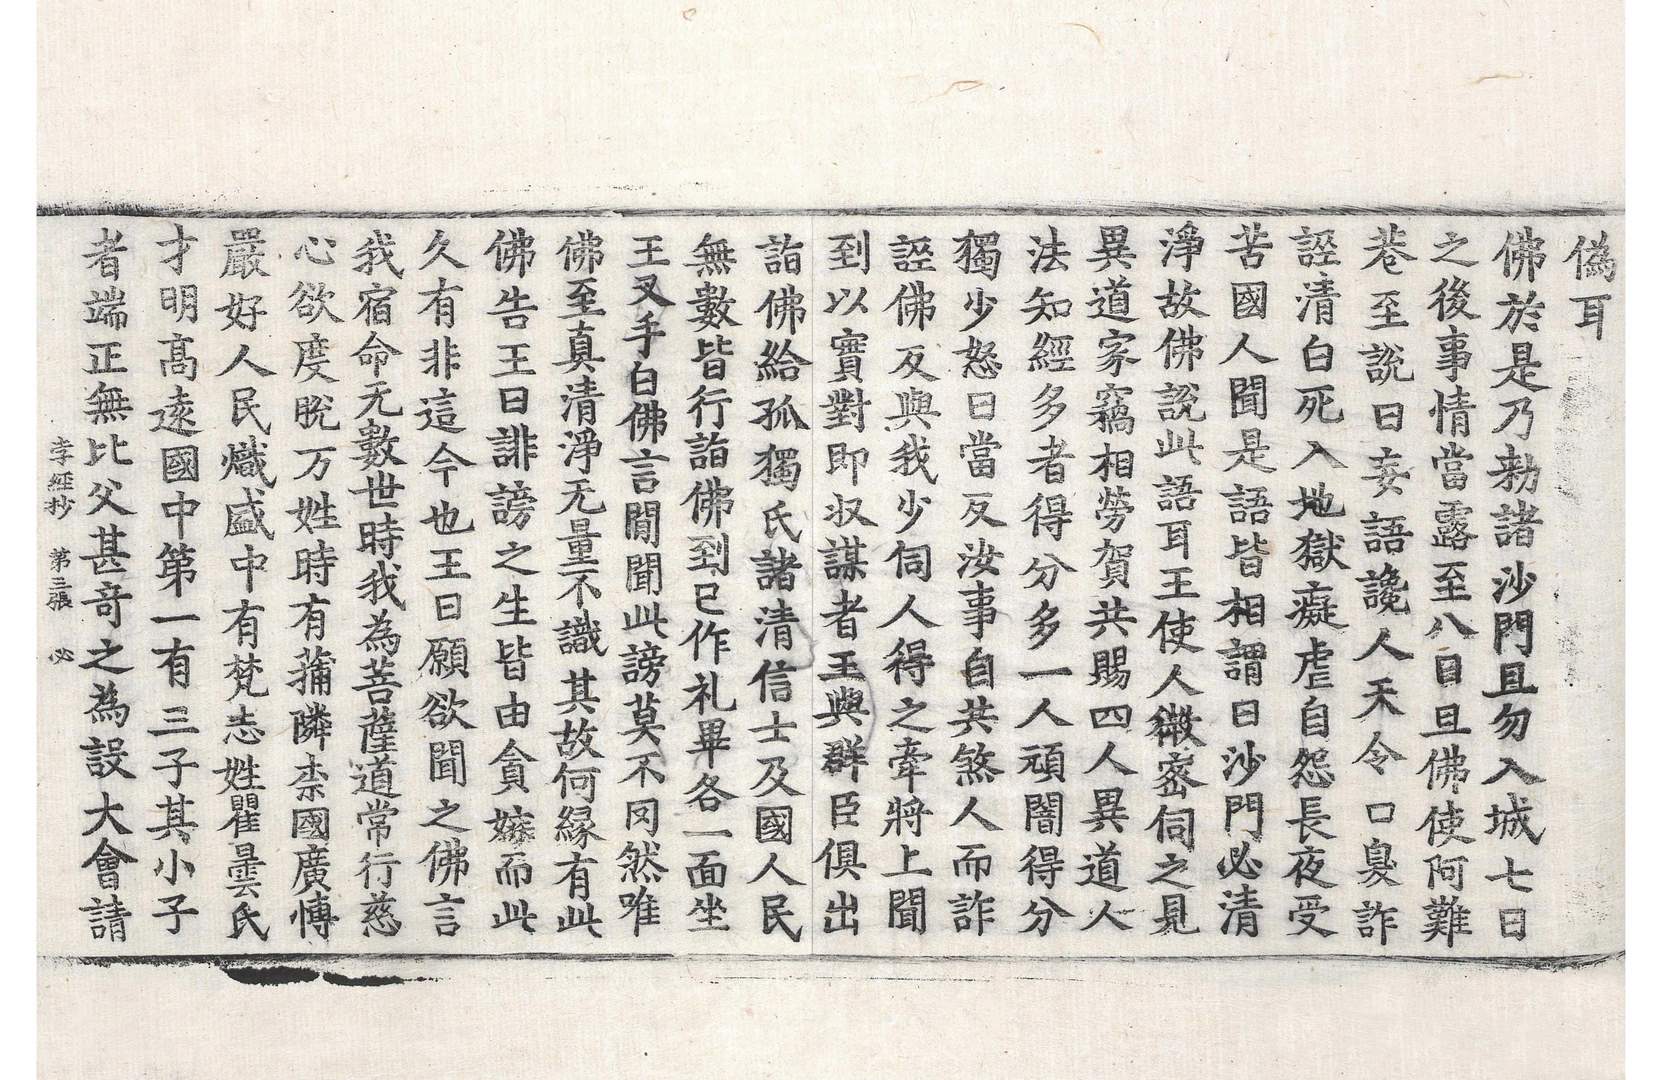 偽耳
佛於是乃勑諸沙門且勿入城七日
之後事情當露至八日旦佛使阿難
巷至說曰妄語讒人天令口臭詐
誣清白死入地獄癡虐自怨長夜受
苦國人聞是語皆相謂曰沙門必清
淨故佛說此語耳王使人微密伺之見
異道家竊相勞賀共賜四人異道人
法知經多者得分多一人頑闇得分
獨少怒曰當反汝事自共煞人而詐
誣佛反與我少伺人得之牽將上聞
到以實對即収謀者王與群臣俱出
詣佛給孤獨氏諸清信士及國人民
無數皆行詣佛到已作礼畢各一面坐
王叉手白佛言間聞此謗莫不罔然唯
佛至真清淨无量不識其故何緣有此
佛告王曰誹謗之生皆由貪嫉而此
久有非這今也王曰願欲聞之佛言
我宿命无數世時我為菩薩道常行慈
心欲度脫万姓時有蒱隣柰國廣愽
嚴好人民熾盛中有梵志姓瞿曇氏
才明高遠國中第一有三子其小子
者端正無比父甚奇之為設大會請
孛經抄 第三張 必